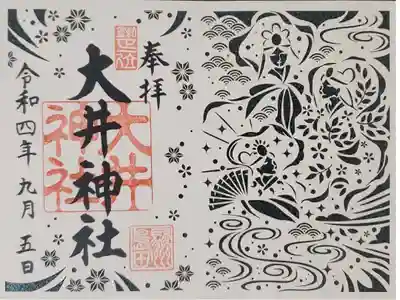 奉拝
大井神社
大井
神社
令和四年 九月 五日